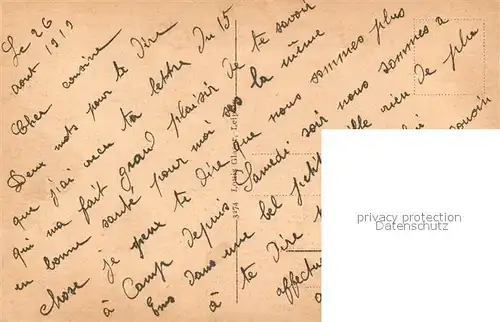 Le 26
aout 1919
Cher cousine
Deux mots pour te dire
que j'ai recu ta lettre du 15
qui ma fait grand plaisir de te savoir
en bonne santé pour moi la même
chose je te dire que nous sommes plus
à Camp depuis Samedi soir nous sommes a
Ems dans une bel petite ville rien de plus
à te dire
affectu
cousin
3474 Louis Glaser, Leipzig
privacy protection
Datenschutz